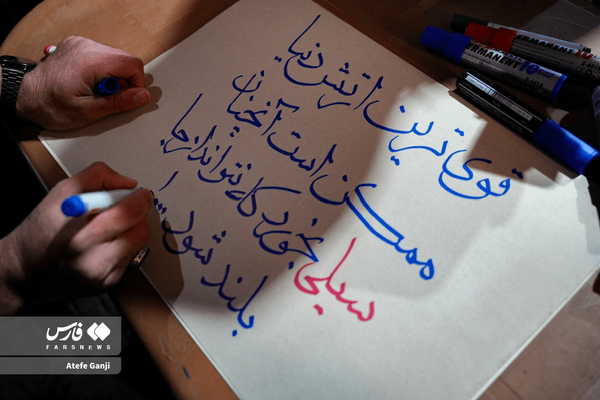 قوی ترین ارتش دنیا
ممکن است آنچنان
سیلی بخورد که نتواند از جا
بلند شود...!
PERMANENT
PERMANENT
فارس
FARSNEWS
Atefe Ganji